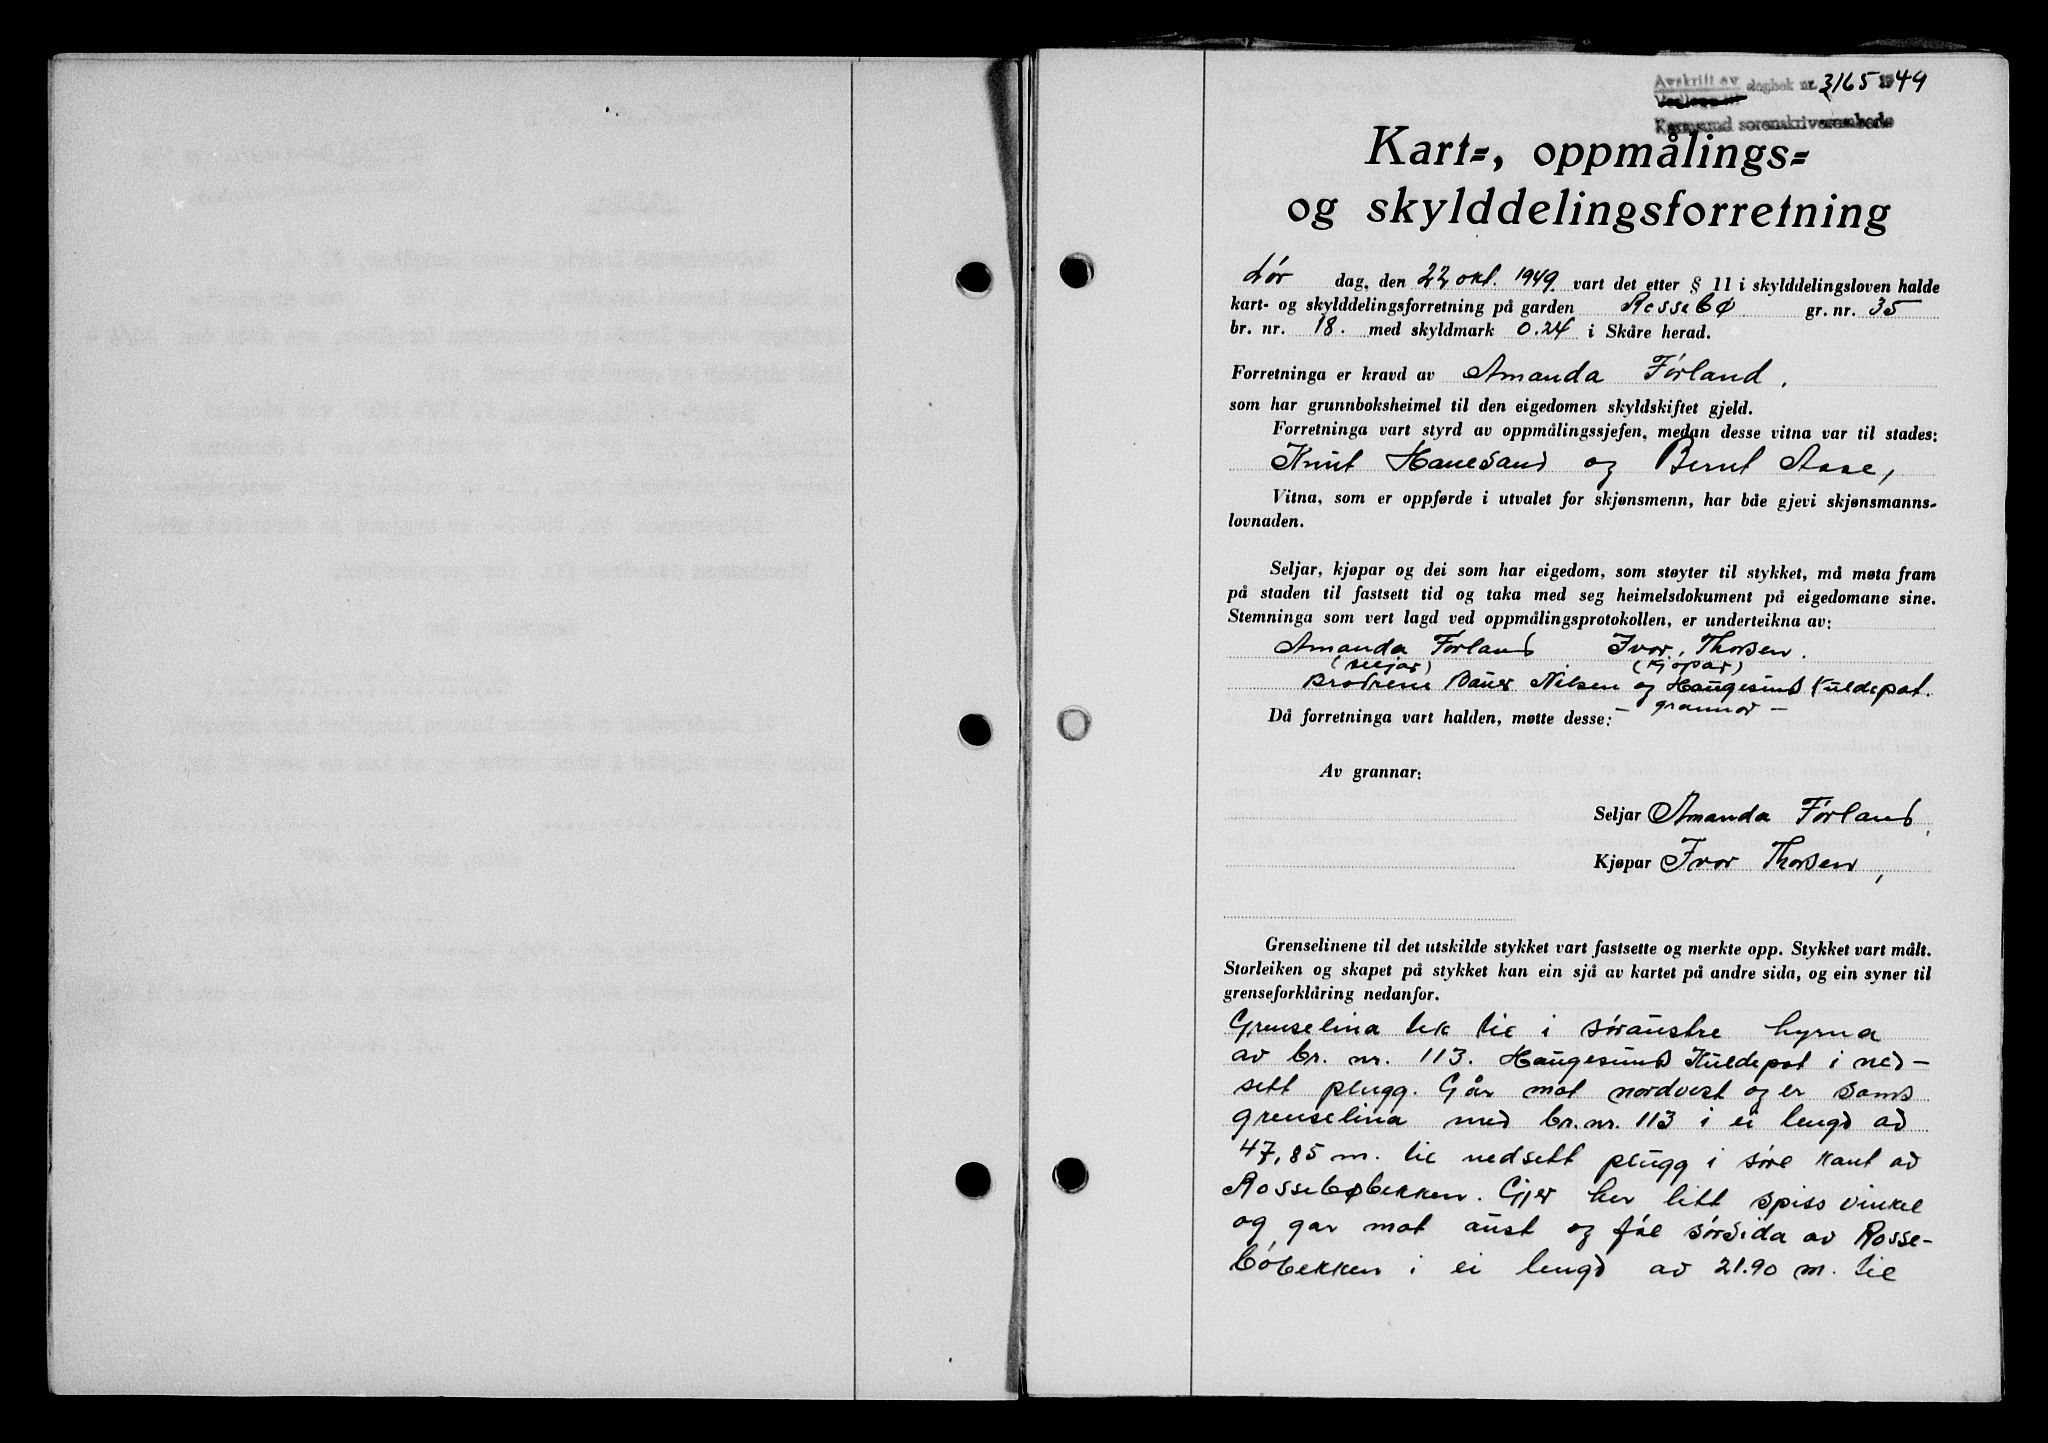 Avskrift av dagbok nr. 3165 1949
Vedlegg til
Karmsund sorenskriverembede
Kart-, oppmålings-
og skylddelingsforretning
Lør dag, den 22 okt. 1949 vart det etter § 11 i skylddelingsloven halde
kart- og skylddelingsforretning på garden Rossebø gr. nr. 35
br. nr. 18. med skyldmark 0.24 i Skåre herad.
Forretninga er kravd av Amanda Førland,
som har grunnboksheimel til den eigedomen skyldskiftet gjeld.
Forretninga vart styrd av oppmålingssjefen, medan desse vitna var til stades:
Knut Hanesand og Bernt Aase,
Vitna, som er oppførde i utvalet for skjønsmenn, har både gjevi skjønsmanns-
lovnaden.
Seljar, kjøpar og dei som har eigedom, som støyter til stykket, må møta fram
på staden til fastsett tid og taka med seg heimelsdokument på eigedomane sine.
Stemninga som vert lagd ved oppmålingsprotokollen, er underteikna av:
Amanda Førland Ivor Thorsen.
(seljar) (kjøpar)
Brødrene Bauer Nilsen og Haugesund Kuldepot.
- grannar -
Då forretninga vart halden, møtte desse:
Av grannar:
Seljar Amanda Førland,
Kjøpar Ivor Thorsen,
Grenselinene til det utskilde stykket vart fastsette og merkte opp. Stykket vart målt.
Storleiken og skapet på stykket kan ein sjå av kartet på andre sida, og ein syner til
grenseforklåring nedanfor.
Grenselina tek til i søraustre hyrna
av br. nr. 113. Haugesund Kuldepot i ned-
sett plugg. Går mot nordvest og er sams
grenselina med br.nr. 113 i ei lengd av
47,85 m. til nedsett plugg i søre kant av
Rossebøbekken. Gjer her litt spiss vinkel
og gar mot aust og føl sørsida av Rosse-
bøbekken i ei lengd av 21.90 m. til